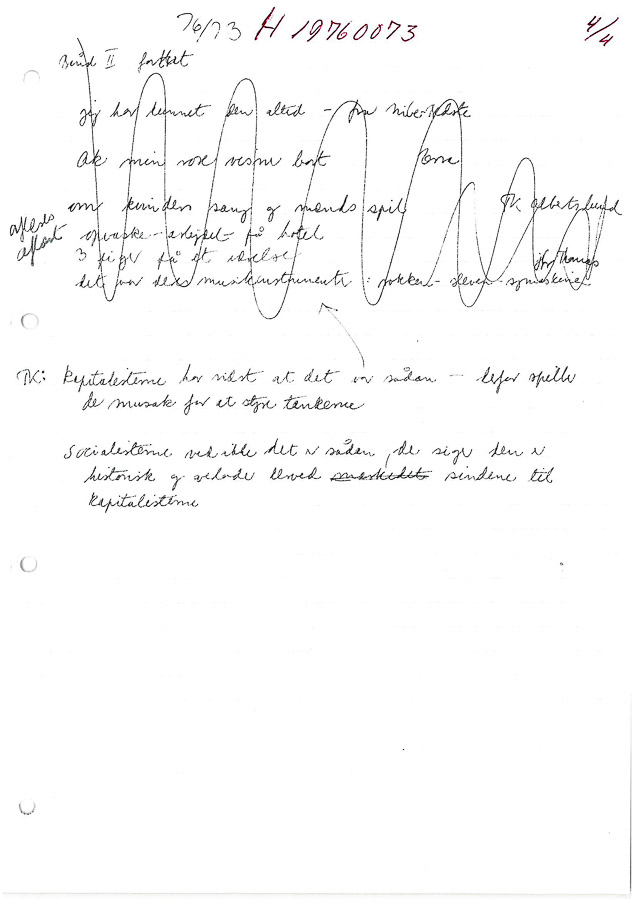 76/73 H 19760073 4/4
Bånd II fortsat
jeg har kunnet den altid - fra
Ak min rose visne bort
om kvinders sang og mænds spil TK Albertslund
opvaske-arbejdet på hotel
3 piger på et værelse
det var deres musikinstrumenter : rokken - sleven - symaskine
TK: Kapitalisterne har vidst at det var sådan - derfor spiller
de musak for at styre tankerne
Socialisterne ved ikke det er sådan, de siger den er
historisk og derved sindene til
kapitalisterne